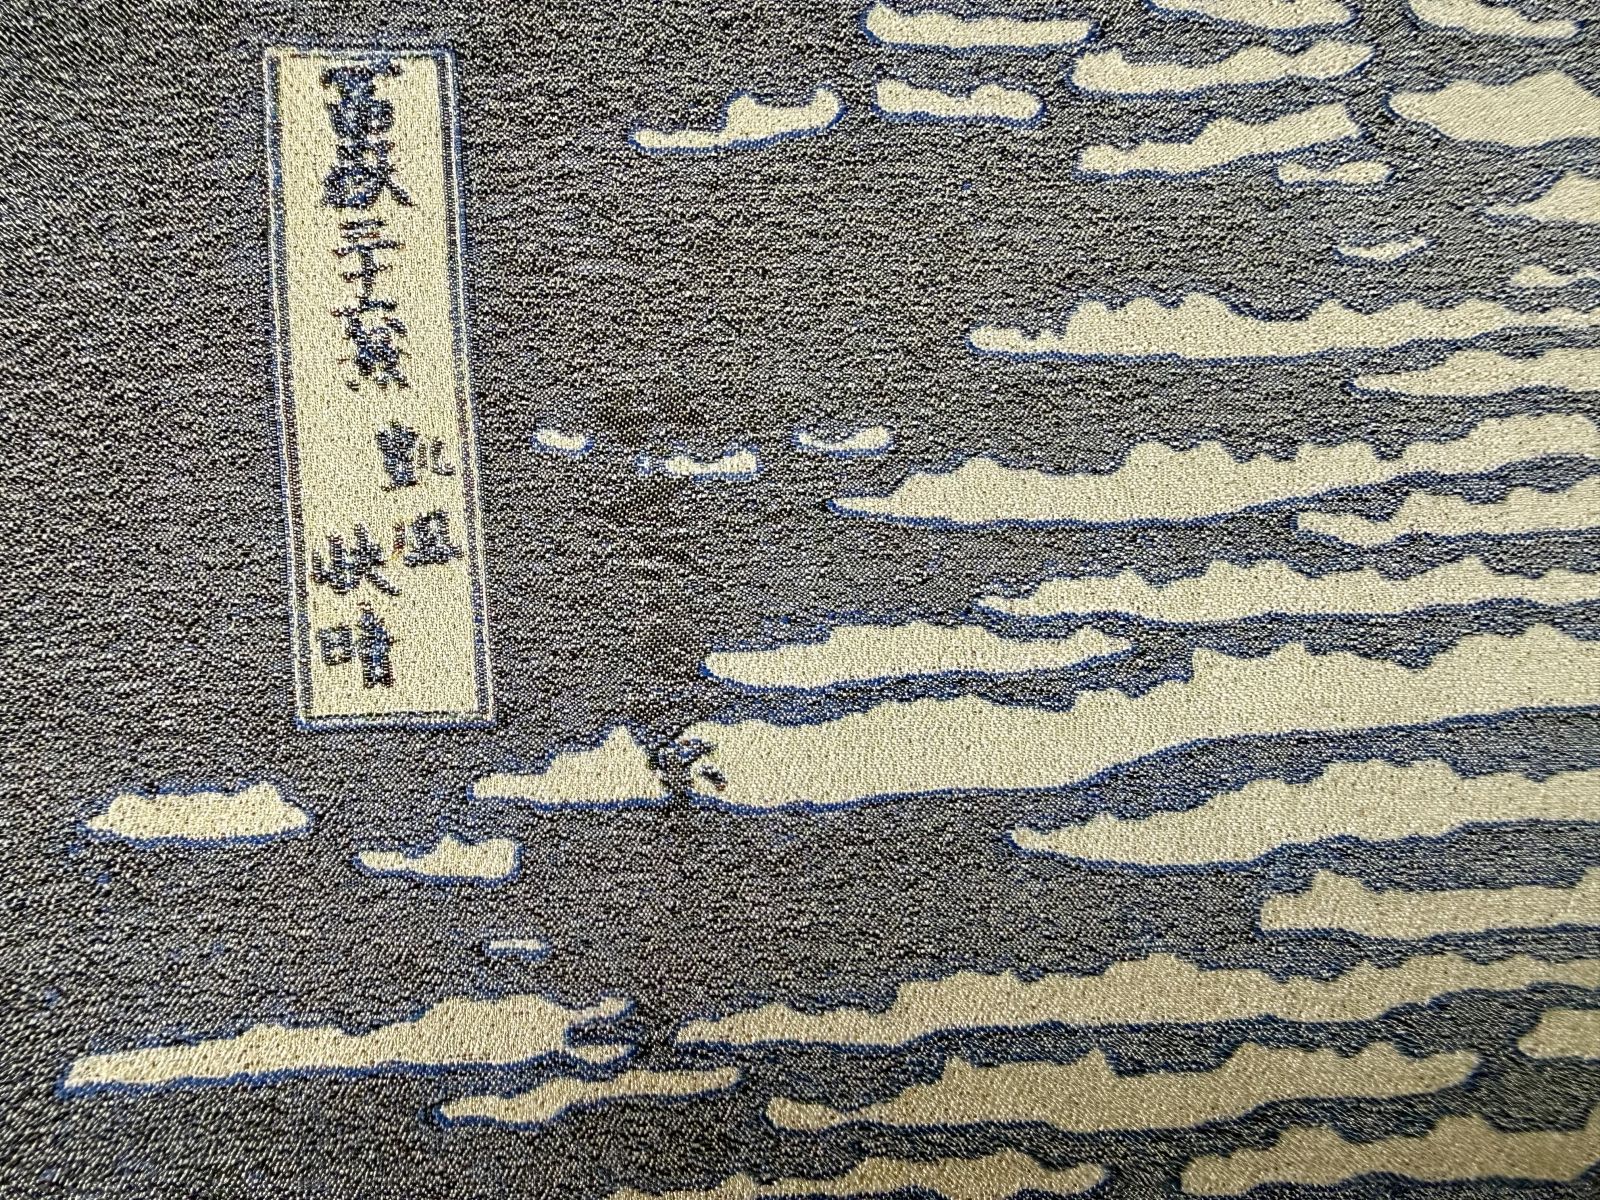 冨嶽三十六景 凱風
快晴